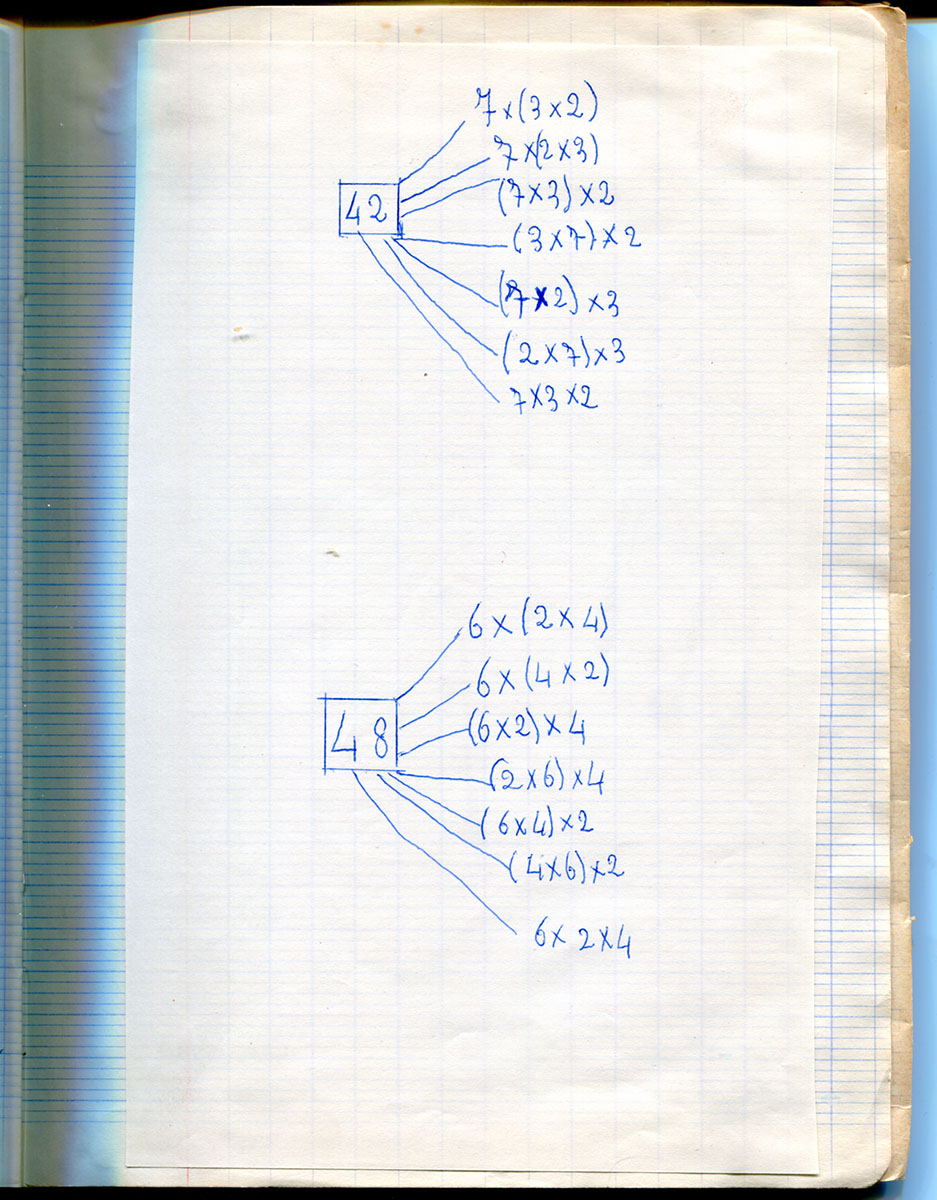 7 × (3 × 2)
7 × (2 × 3)
(7 × 3) × 2
42
(3 × 7) × 2
(7 × 2) × 3
(2 × 7) × 3
7 × 3 × 2
6 × (2 × 4)
6 × (4 × 2)
(6 × 2) × 4
48
(2 × 6) × 4
(6 × 4) × 2
(4 × 6) × 2
6 × 2 × 4